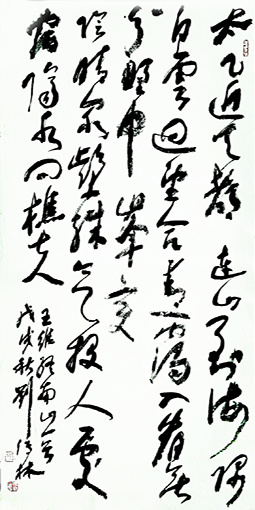 太乙近天都連山到海隅
白雲迴望合青靄入看無
分野中峰變
陰晴眾壑殊欲投人處
宿隔水問樵夫
王維終南山
戊戌秋劉林